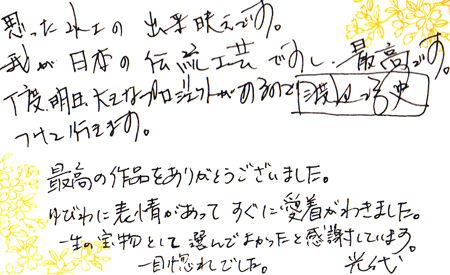 思った以上の出来映えです。
我が日本の伝統工芸ですし、最高です。
丁度、明日大きなプロジェクトがあるので
つけて行きます。
最高の作品をありがとうございました。
ゆびわに表情があってすぐに愛着がわきました。
一生の宝物として選んでよかったと感謝しています。
一目惚れでした。
光代